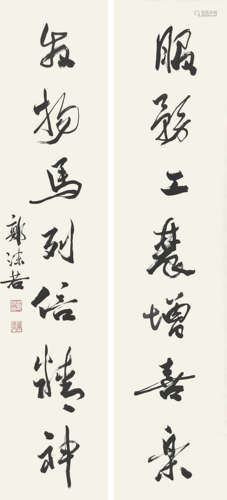 服務工農增喜樂
發揚馬列倍精神
郭沫若